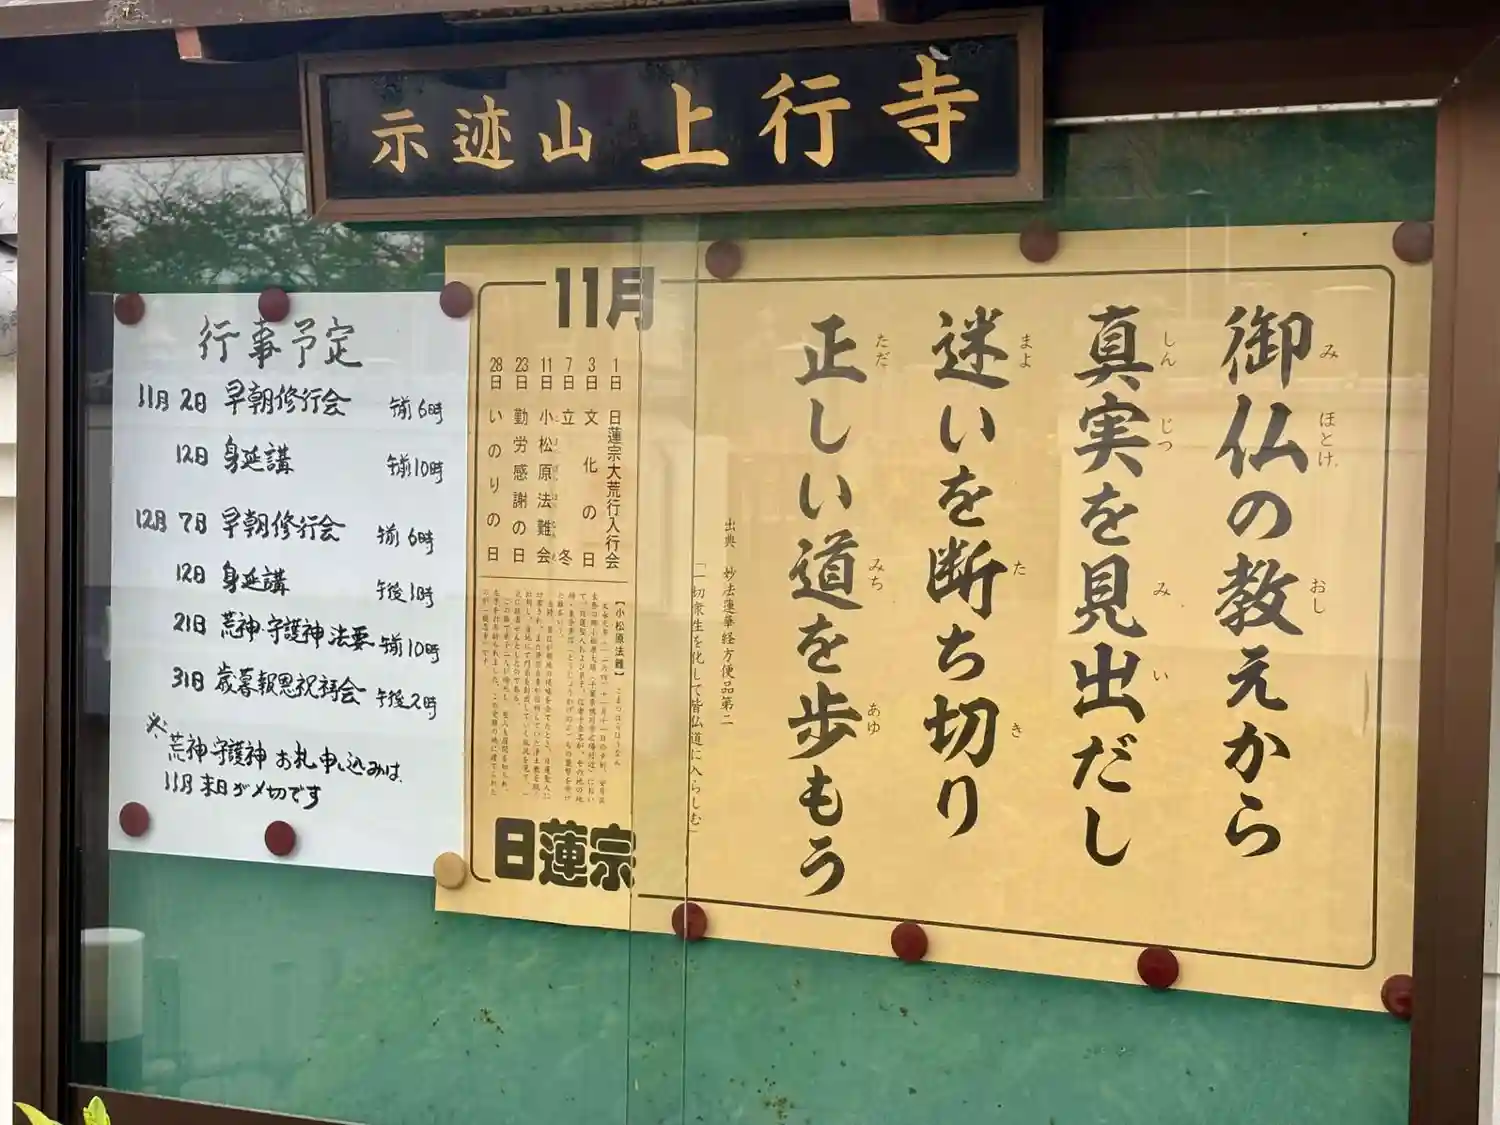 示迹山 上行寺
御仏の教えから
み ほとけ おし
真実を見出だし
しん じつ み い
迷いを断ち切り
まよ た き
正しい道を歩もう
ただ みち あゆ
出典 妙法蓮華経方便品第二
「一切衆生を化して皆仏道に入らしむ」
11月
1日 日蓮宗大荒行入行会
3日 文化の日
7日 立冬
11日 小松原法難会
23日 勤労感謝の日
28日 いのりの日
【小松原法難】
日蓮宗
行事予定
11月 2日 早朝修行会 午前6時
12日 身延講 午前10時
12月 7日 早朝修行会 午前6時
12日 身延講 午後1時
21日 荒神・守護神法要 午前10時
31日 歳暮報恩祝祷会 午後2時
※荒神・守護神お札申し込みは、
11月末日が〆切です